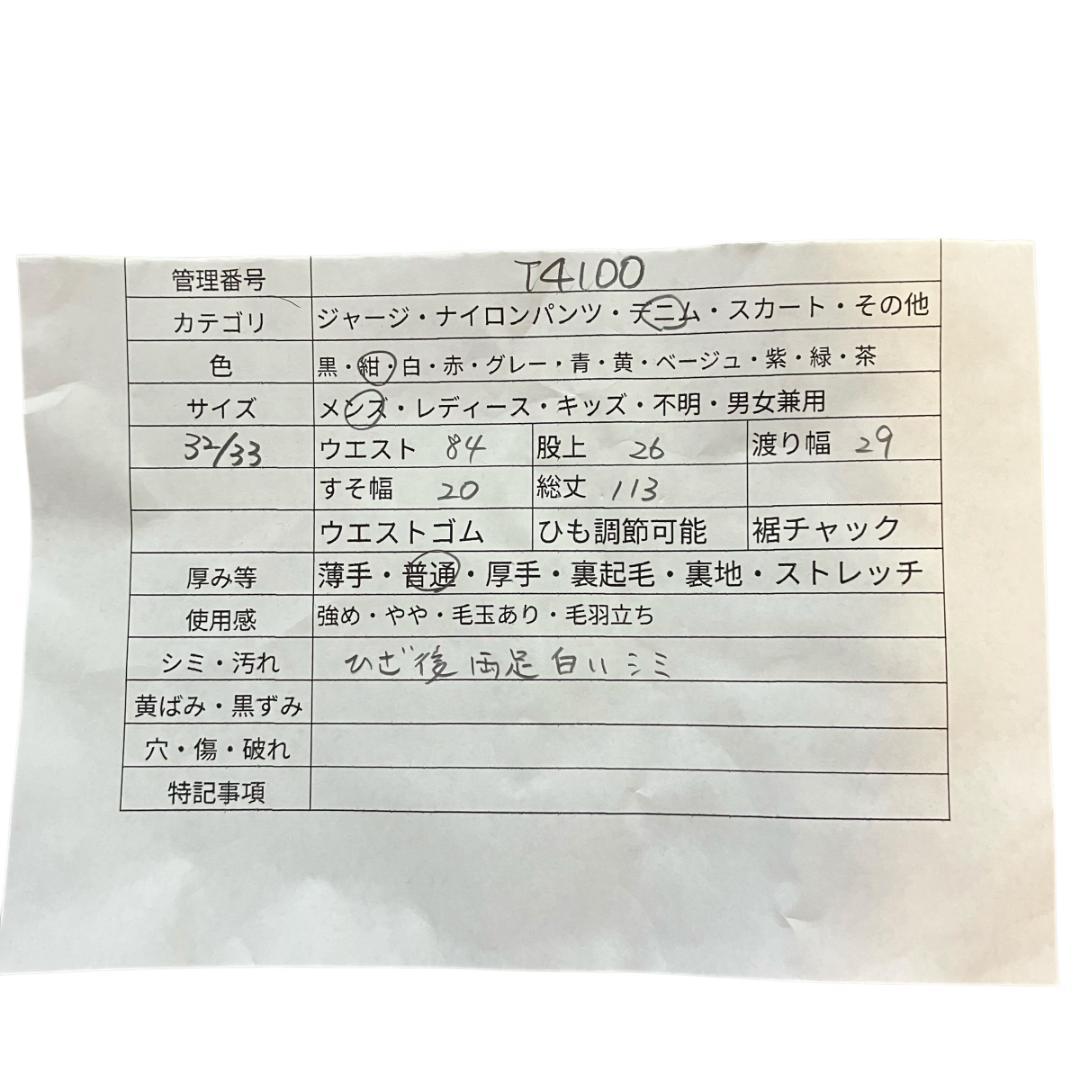 管理番号 T4100
カテゴリ ジャージ・ナイロンパンツ・デニム・スカート・その他
色 黒・紺・白・赤・グレー・青・黄・ベージュ・紫・緑・茶
サイズ メンズ・レディース・キッズ・不明・男女兼用
32/33 ウエスト 84 股上 26 渡り幅 29
すそ幅 20 総丈 113
ウエストゴム ひも調節可能 裾チャック
厚み等 薄手・普通・厚手・裏起毛・裏地・ストレッチ
使用感 強め・やや・毛玉あり・毛羽立ち
シミ・汚れ ひざ後 両足 白いシミ
黄ばみ・黒ずみ
穴・傷・破れ
特記事項